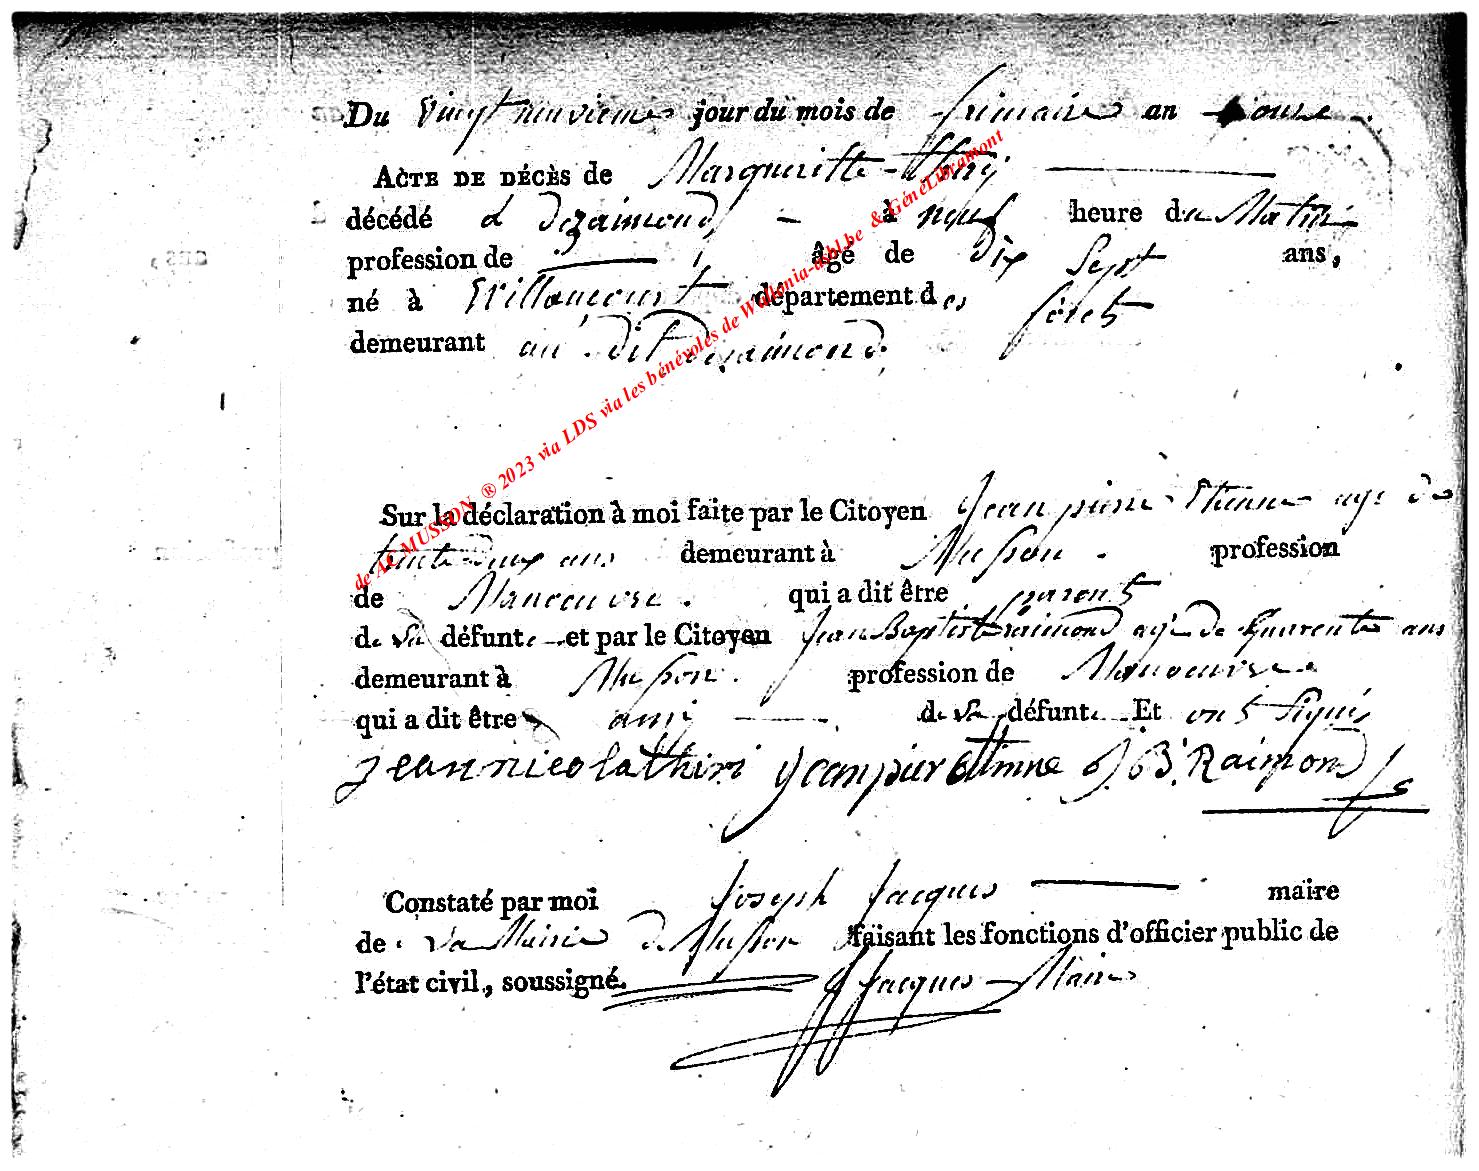 Du vingt neuvieme jour du mois de frimaire an onze
ACTE DE DÉCÈS de Margueritte thiry
décédé à dezaimond, - à neuf heure du Matin
profession de — , âge de Dix Sept ans,
né à Villancourt département des forets
demeurant au dit Dezaimond.
Sur la déclaration à moi faite par le Citoyen Jean pierre Etienne age de
trente Deux ans demeurant à Musson. profession
de Manoeuvre. qui a dit être parent
de La défunte et par le Citoyen Jean Baptiste raimond agé de Quarente ans
demeurant à Musson. profession de Manoeuvre
qui a dit être ami de La défunte Et ont Signés
jean nicola thiri jean pier Etinne J. B. Raimond
Constaté par moi Joseph Jacques maire
de La Mairie de Musson faisant les fonctions d'officier public de
l'état civil, soussigné. J Jacques Maire
de AC MUSSON ® 2023 via LDS via les bénévoles de Wallonia-asbl.be & GénéLibramont